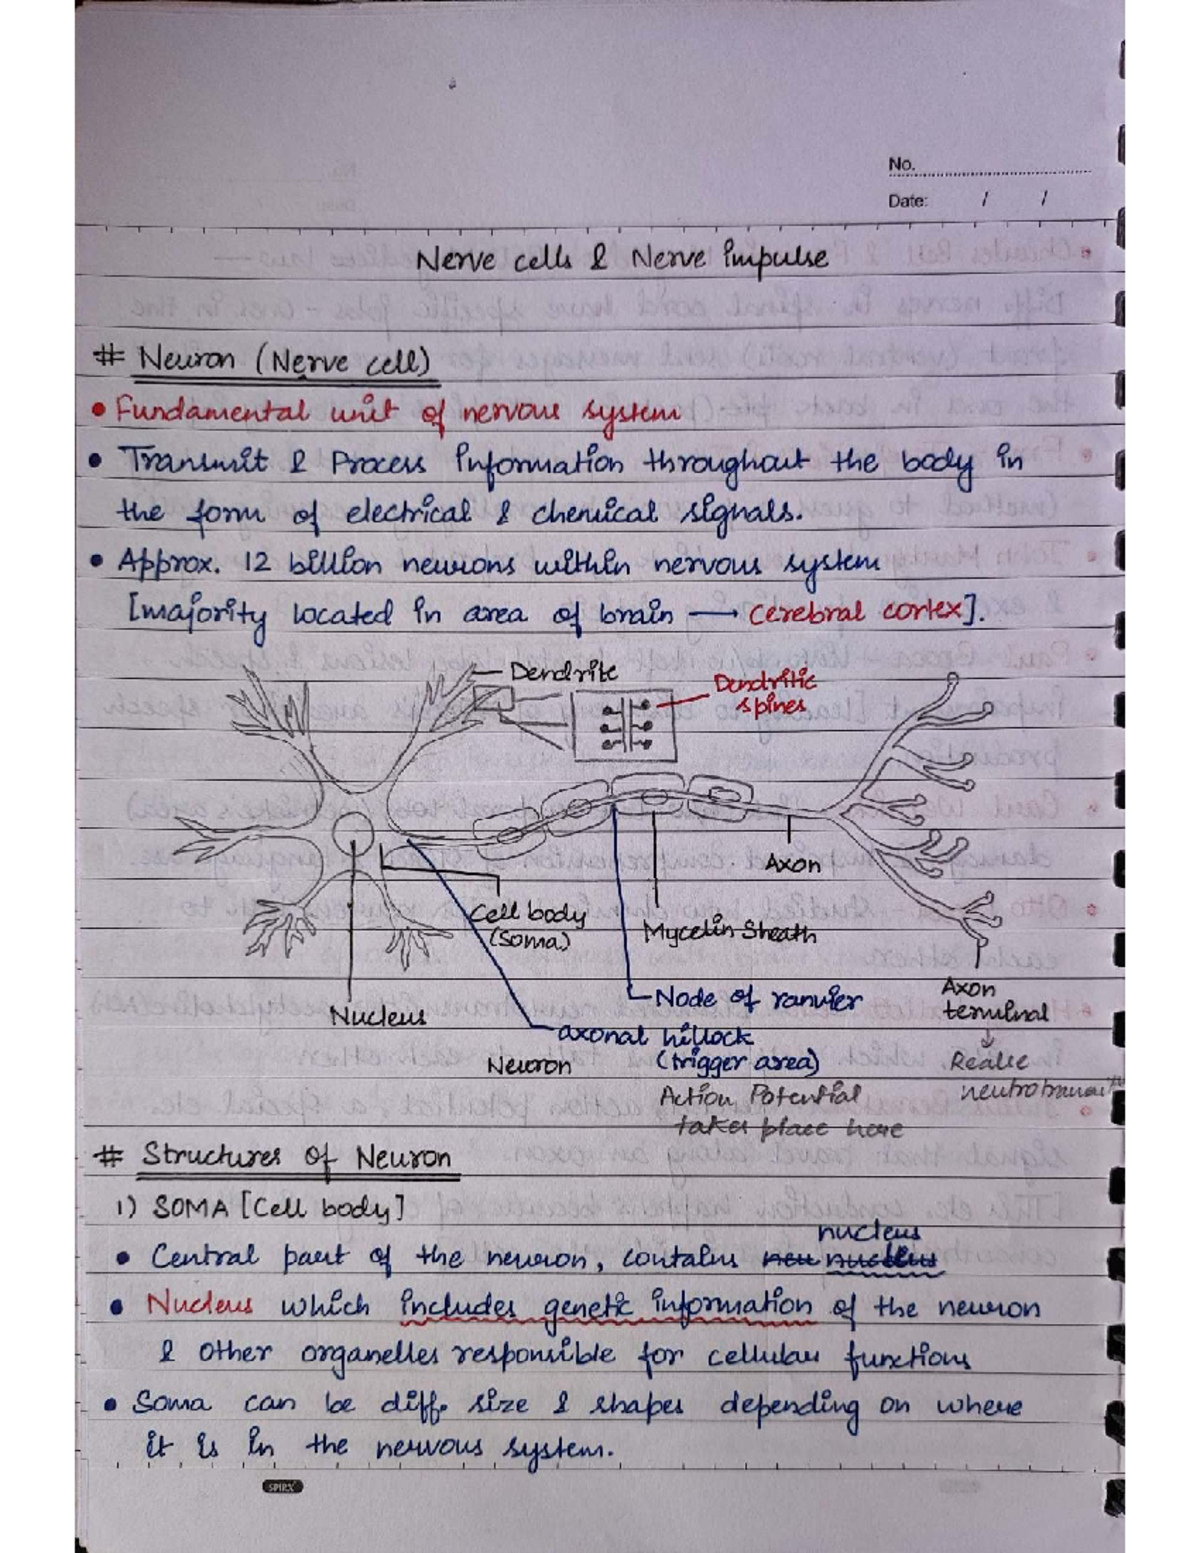 No.
Date: / /
Nerve cells & Nerve impulse
# Neuron (Nerve cell)
• Fundamental unit of nervous system
• Transmit & Process information throughout the body in
the form of electrical & chemical signals.
• Approx. 12 billion neurons within nervous system
[majority located in area of brain → cerebral cortex].
Dendrite
Dendritic
spines
Axon
Cell body
(soma)
Mycelin Sheath
Node of ranvier
Axon
terminal
Nucleus
axonal hillock
(trigger area)
Neuron
Realse
Action Potential
takes place here
# Structures of Neuron
1) SOMA [Cell body]
nucleus
• Central part of the neuron, contains neu nucleus
• Nucleus which includes genetic information of the neuron
& other organelles responsible for cellular functions
• Soma can be diff. size & shapes depending on where
it is in the nervous system.
SPIRX